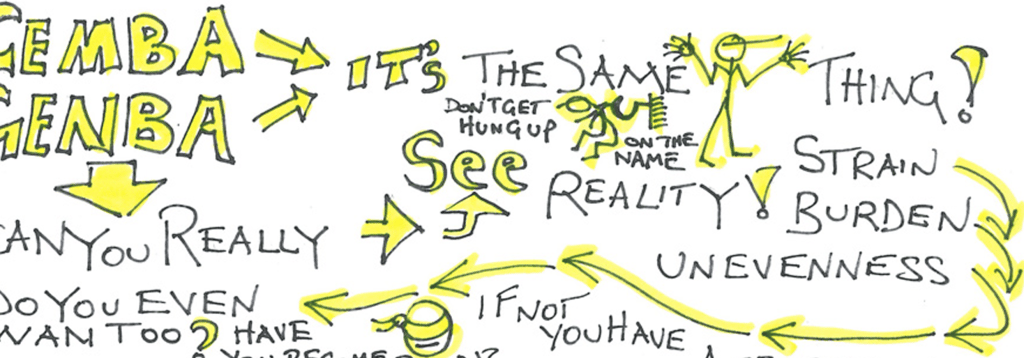 GEMBA
GENBA
IT'S THE SAME THING!
DON'T GET
HUNG UP
ON THE
NAME
CAN YOU REALLY
SEE
REALITY!
STRAIN
BURDEN
UNEVENNESS
DO YOU EVEN
WANT TOO? HAVE
YOU BECOME
IF NOT
YOU HAVE